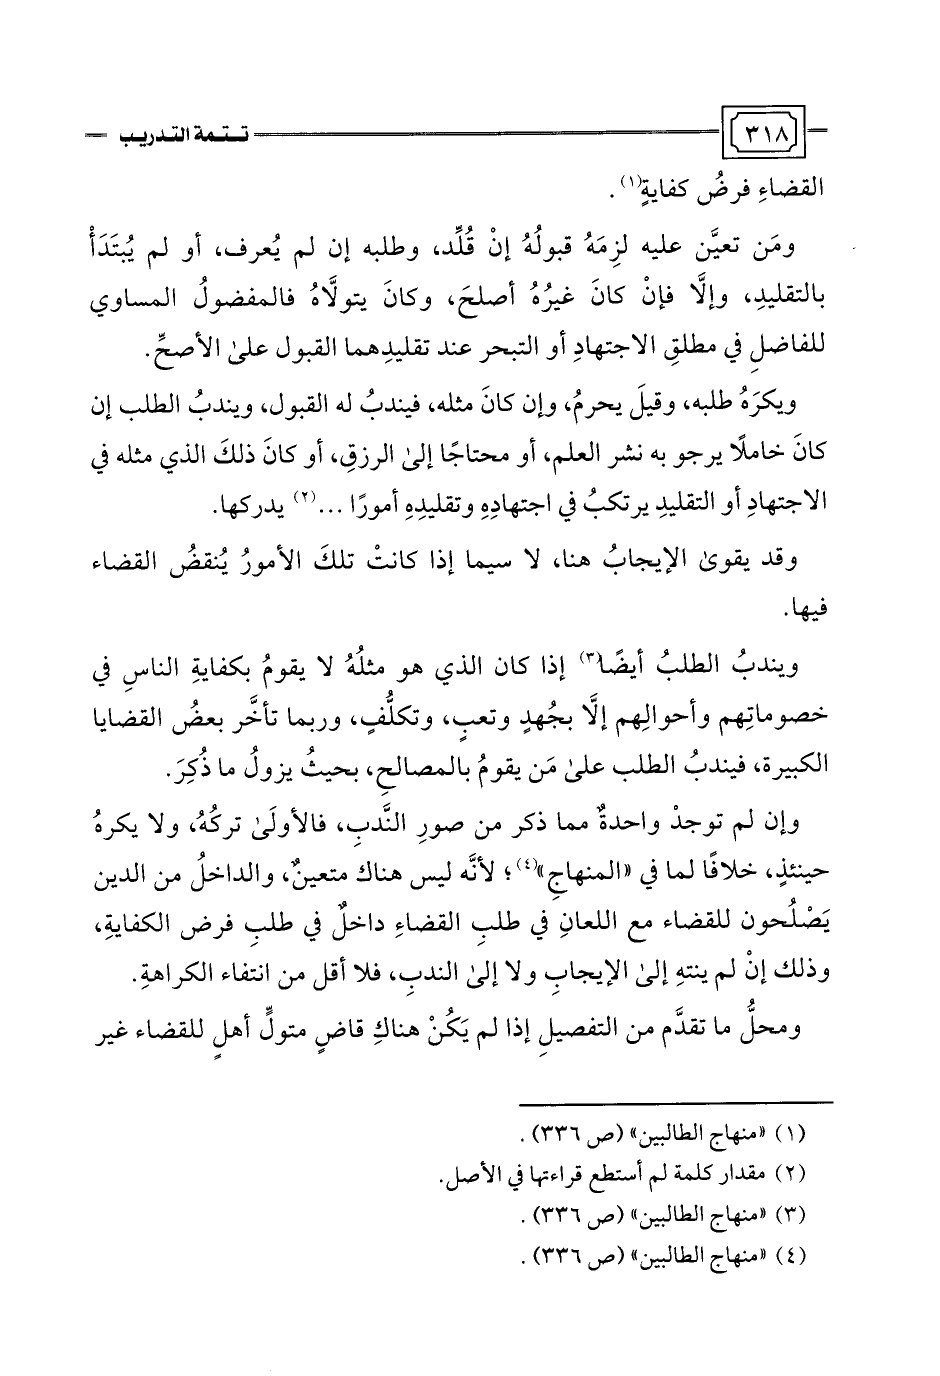 ٣١٨
تـتـمة التدريب
القضاءِ فرضُ كفايةٍ(١).
ومَن تعيَّن عليه لزِمَهُ قبولُهُ إنْ قُلِّد، وطلبه إن لم يُعرف، أو لم يُبتَدَأْ
بالتقليدِ، وإلَّا فإنْ كانَ غيرُهُ أصلحَ، وكانَ يتولَّاهُ فالمفضولُ المساوي
للفاضلِ في مطلقِ الاجتهادِ أو التبحر عند تقليدِهما القبول على الأصحِّ.
ويكرَهُ طلبه، وقيلَ يحرمُ، وإن كانَ مثله، فيندبُ له القبول، ويندبُ الطلب إن
كانَ خاملًا يرجو به نشر العلم، أو محتاجًا إلى الرزقِ، أو كانَ ذلكَ الذي مثله في
الاجتهادِ أو التقليدِ يرتكبُ في اجتهادِهِ وتقليدِهِ أمورًا ...(٢) يدركها.
وقد يقوى الإيجابُ هنا، لا سيما إذا كانتْ تلكَ الأمورُ يُنقضُ القضاء
فيها.
ويندبُ الطلبُ أيضًا(٣) إذا كان الذي هو مثلُهُ لا يقومُ بكفايةِ الناسِ في
خصوماتِهم وأحوالِهم إلَّا بجُهدٍ وتعبٍ، وتكلُّفٍ، وربما تأخَّر بعضُ القضايا
الكبيرة، فيندبُ الطلب على مَن يقومُ بالمصالحِ، بحيثُ يزولُ ما ذُكِرَ.
وإن لم توجدْ واحدةٌ مما ذكر من صورِ النَّدبِ، فالأولَى تركُهُ، ولا يكرهُ
حينئذٍ، خلافًا لما في «المنهاجِ»(٤)؛ لأنَّه ليس هناك متعينٌ، والداخلُ من الدين
يَصْلُحون للقضاء مع اللعانِ في طلبِ القضاءِ داخلٌ في طلبِ فرض الكفايةِ،
وذلك إنْ لم ينتهِ إلى الإيجابِ ولا إلى الندبِ، فلا أقل من انتفاء الكراهةِ.
ومحلُّ ما تقدَّم من التفصيلِ إذا لم يَكُنْ هناكِ قاضٍ متولٍّ أهلٍ للقضاء غير
(١) «منهاج الطالبين» (ص ٣٣٦).
(٢) مقدار كلمة لم أستطع قراءتها في الأصل.
(٣) «منهاج الطالبين» (ص ٣٣٦).
(٤) «منهاج الطالبين» (ص ٣٣٦).